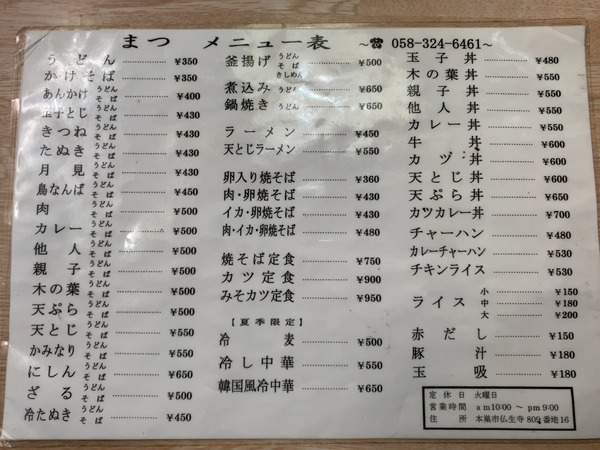 まつ メニュー表 ～☎ 058-324-6461～
うどん ¥350
かけそば ¥350
あんかけ うどん そば ¥400
玉子とじ うどん そば ¥430
きつね うどん そば ¥430
たぬき うどん そば ¥430
月見 うどん そば ¥430
鳥なんば うどん そば ¥450
肉 うどん そば ¥500
カレー うどん そば ¥500
他人 うどん そば ¥500
親子 うどん そば ¥500
木の葉 うどん そば ¥500
天ぷら うどん そば ¥500
天とじ うどん そば ¥550
かみなり うどん そば ¥550
にしん うどん そば ¥550
ざる うどん そば ¥500
冷たぬき うどん そば ¥450
釜揚げ うどん そば きしめん ¥500
煮込み うどん ¥650
鍋焼き うどん ¥650
ラーメン ¥450
天とじラーメン ¥550
卵入り焼そば ¥360
肉・卵焼そば ¥430
イカ・卵焼そば ¥430
肉・イカ・卵焼そば ¥480
焼そば定食 ¥750
カツ定食 ¥900
みそカツ定食 ¥950
【夏季限定】
冷麦 ¥500
冷し中華 ¥550
韓国風冷中華 ¥650
玉子丼 ¥480
木の葉丼 ¥550
親子丼 ¥550
他人丼 ¥550
カレー丼 ¥550
牛丼 ¥600
カツ丼 ¥600
天とじ丼 ¥600
天ぷら丼 ¥650
カツカレー丼 ¥700
チャーハン ¥480
カレーチャーハン ¥530
チキンライス ¥530
ライス 小 ¥150
中 ¥180
大 ¥200
赤だし ¥150
豚汁 ¥180
玉吸 ¥180
定休日 火曜日
営業時間 am10:00 ～ pm9:00
住所 本巣市仏生寺809番地16